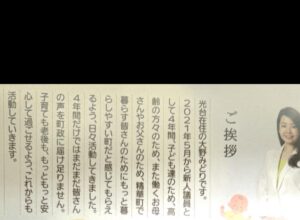 ご挨拶
光台在住の大野みどりです。
2021年5月から新人議員と
して4年間、子ども達のため、高
齢の方々のため、また働くお母
さんやお父さんのため、精華町で
暮らす皆さんのためにもっと暮
らしやすい町だと感じてもらえ
るよう、日々活動してきました。
4年間だけではまだまだ皆さん
の声を町政に届け足りません。
子育ても老後も、もっともっと安
心して過ごせるよう、これからも
活動していきます。